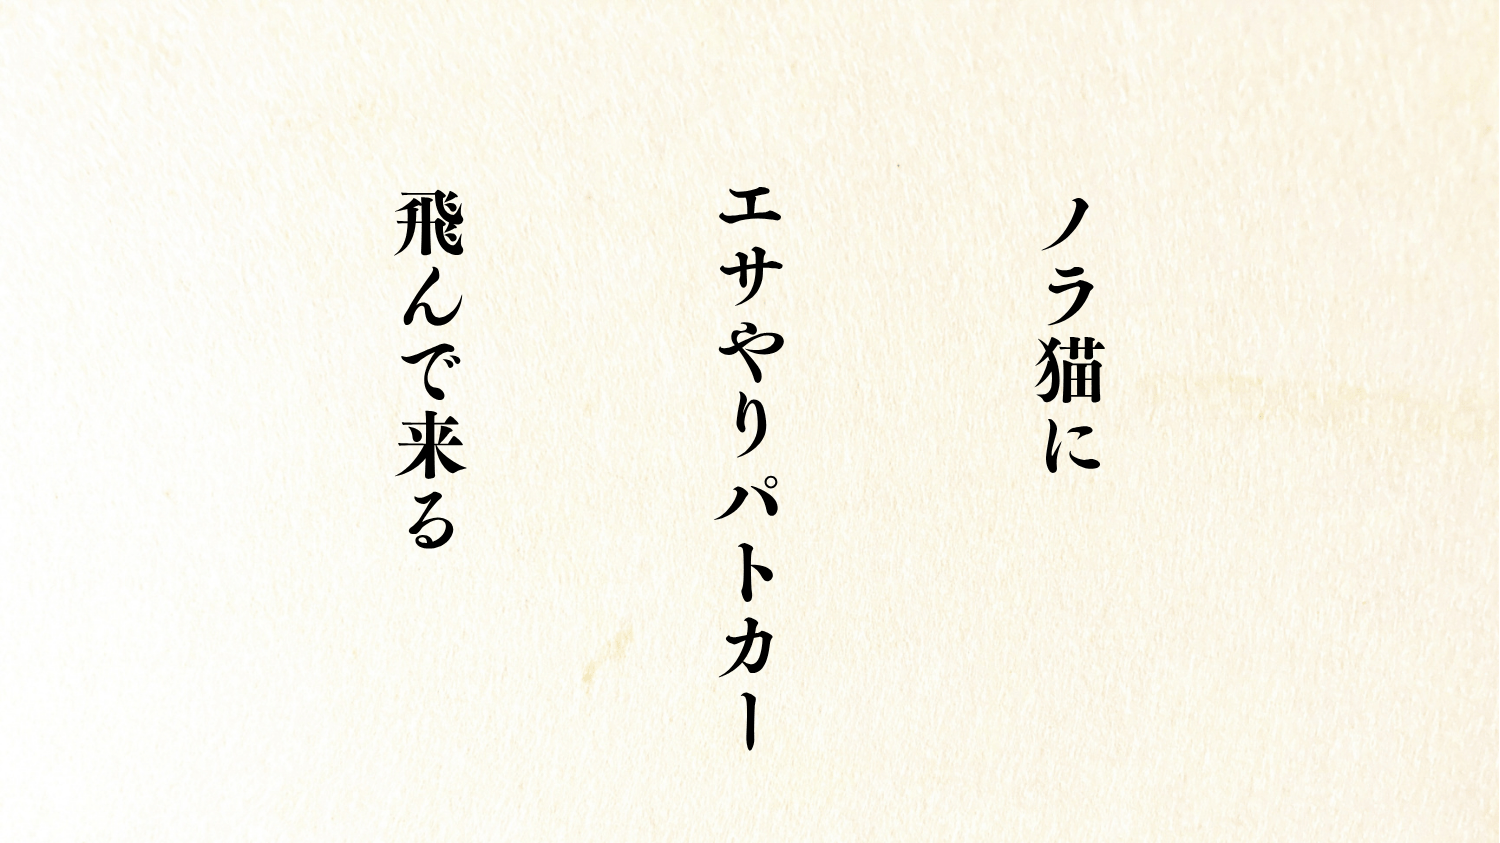 ノラ猫に
エサやりパトカー
飛んで来る